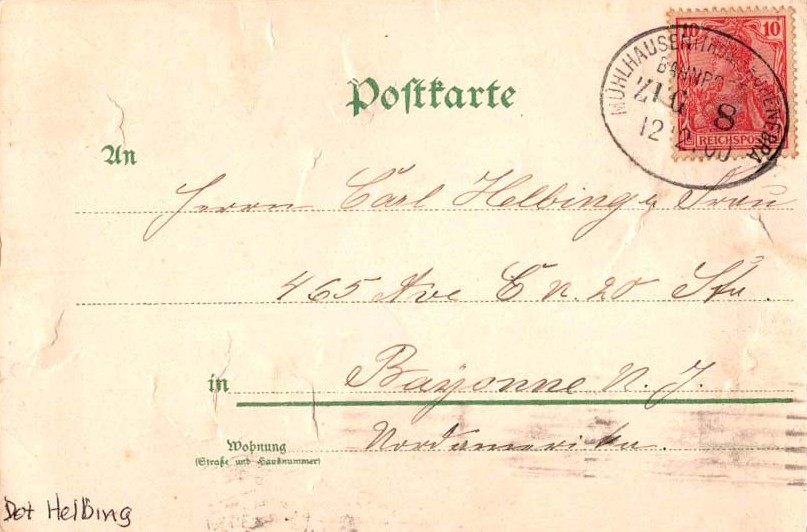 10 10
REICHSPOST
MÜHLHAUSEN HOHENEBRA
BAHNPOST
ZUG 8
12 00
Postkarte
An
Herrn Carl Helbing u Frau
465 Ave E n. 20 Str.
in Bayonne N. J.
Wohnung
(Straße und Hausnummer)
Nordamerika.
Dot Helbing